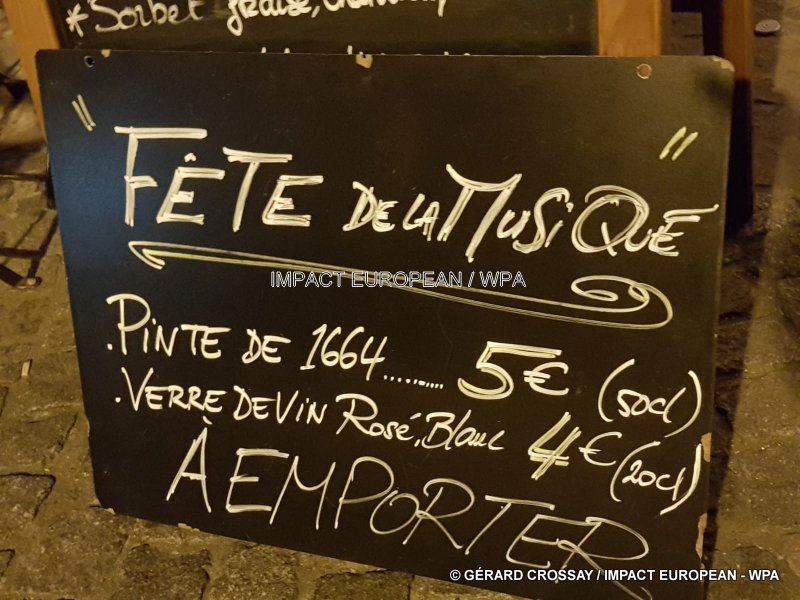 *Sorbet fraise,
" FÊTE DE LA MUSIQUE "
IMPACT EUROPEAN / WPA
. PINTE DE 1664........ 5€ (50cl)
. VERRE DE VIN Rosé, Blanc 4€ (20cl)
À EMPORTER
© GÉRARD CROSSAY / IMPACT EUROPEAN - WPA